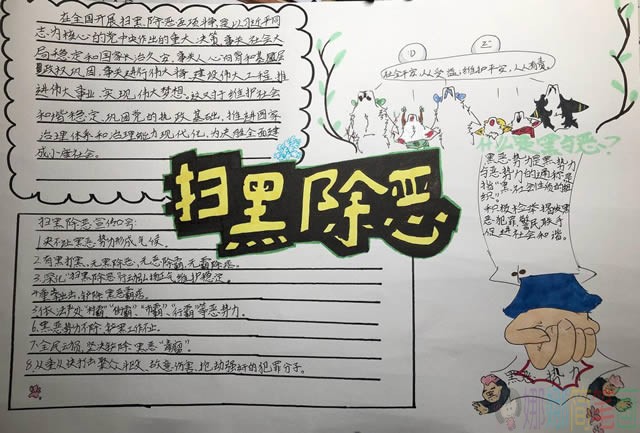 在全国开展扫黑除恶专项斗争,是以习近平同
志为核心的党中央作出的重大决策,事关社会大
局稳定和国家长治久安,事关人心向背和基层
政权巩固,事关进行伟大斗争,建设伟大工程,推
进伟大事业,实现伟大梦想。这对于维护社会
和谐稳定,巩固党的执政基础,推进国家
治理体系和治理能力现代化,为决胜全面建
成小康社会。
社会平安,人人受益,维护平安,人人有责。
扫黑除恶
什么是黑与恶?
黑恶势力是黑势力
与恶势力的通称,是
指“黑社会性质的组
织”。
积极检举揭发黑
恶犯罪警民联手
促进社会和谐。
扫黑除恶宣传口号:
1.决不让黑恶势力形成气候。
2.有黑扫黑、无黑除恶、无恶除霸、无霸除痞。
3.深化“扫黑除恶行动弘扬正气维护稳定。
4.重拳出击,铲除黑恶霸痞。
5.依法严处“村霸”“街霸”“市霸”、行霸”等恶势力。
6.黑恶势力不除,铲黑工作不止。
7.全民动员,坚决铲除黑恶“毒瘤”。
8.从重从快打击聚众斗殴、故意伤害、抢劫强奸的犯罪分子。
黑恶势力